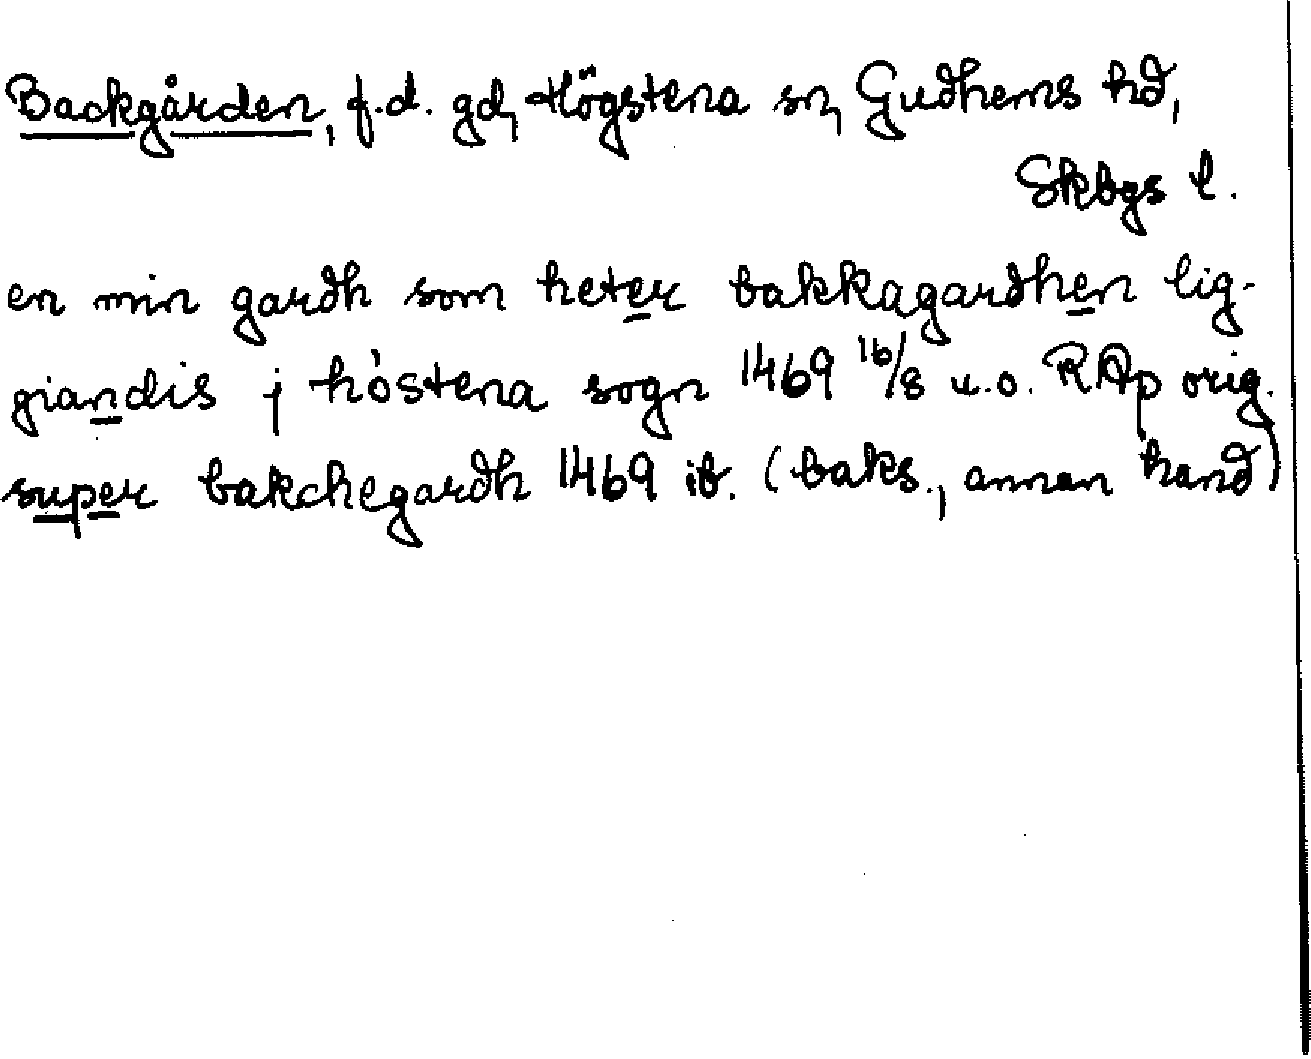 Backgården, f.d. gd, Högstena sn, Gudhems hd,
Skbgs l.
en min gardh som heter bakkagardhen lig-
giandis j hòstena sogn 1469 16/8 u.o. RAp orig.
super bakchegardh 1469 ib. (baks., annan hand)